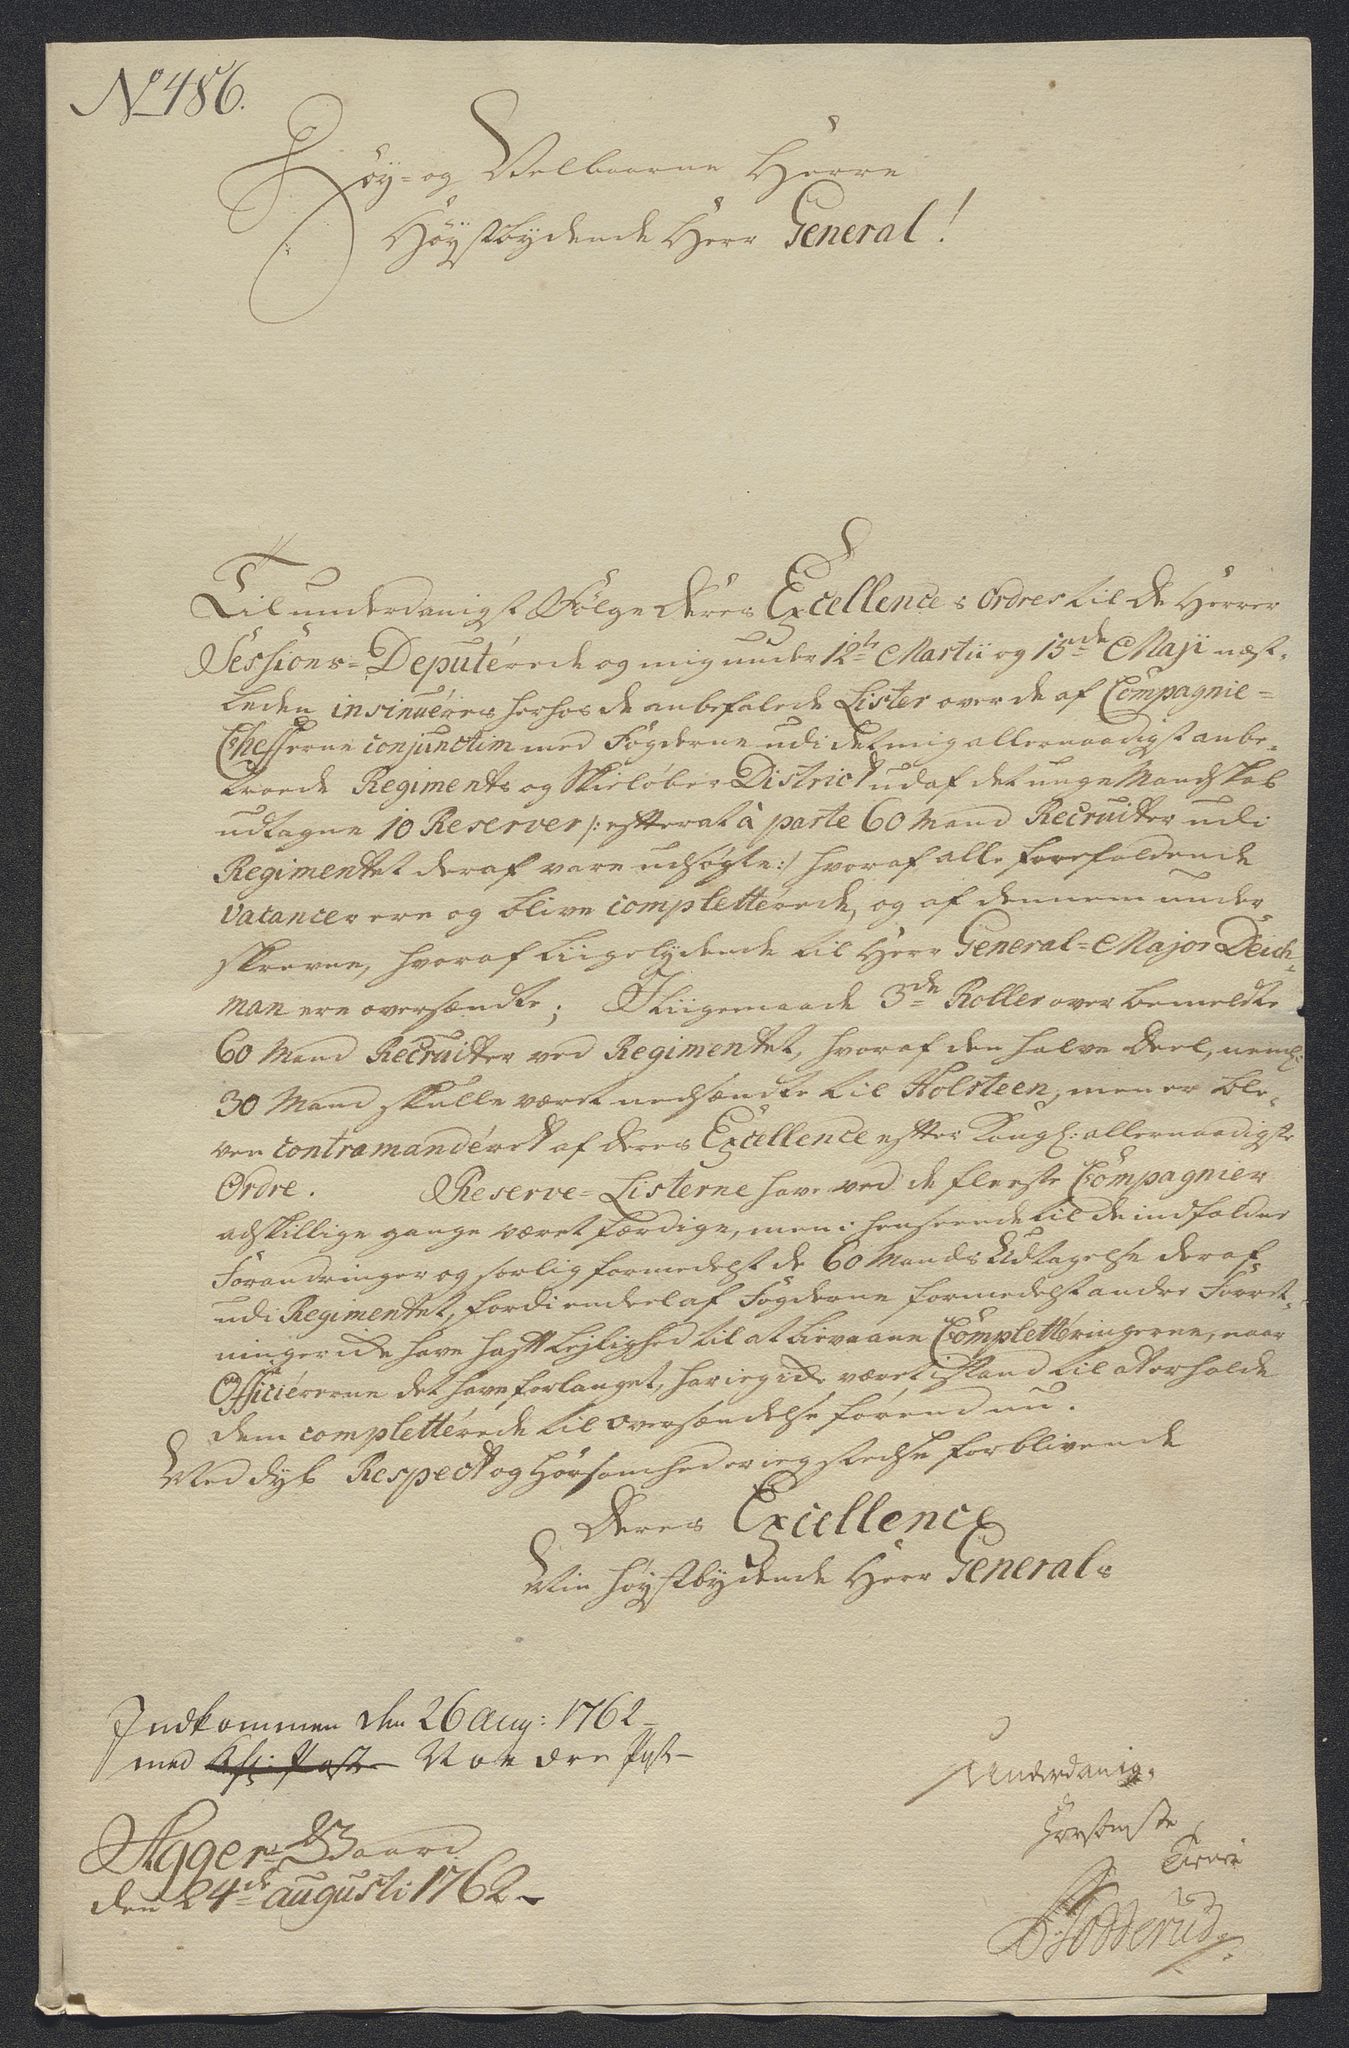 No 486.
Høy- og Velbaarne Herre
Høystbydende Herr General!
Til underdanigst Følge Deres Excellences Ordres til de Herrer
Sessions-Deputérede og mig under 12te Martii og 15de Maji næst-
leden insinuéres herhos de anbefalede Lister over de af Compagnie-
Chefferne conjunctim med Fogderne udi det mig allernaadigst anbe-
troede Regiments og Skieløber District ud af det unge Mandskab
udtagne 10 Reserver /: efter at à parte 60 Mand Recruitter udi
Regimentet deraf vare udsøgte :/ hvoraf alle forefaldende
Vacancer ere og blive completterede, og af dennem under
skrevne, hvoraf liigelydende til Herr General-Major Deich-
man ere oversendte; Iliigemaade 3de Roller over bemeldte
60 Mand Recruitter ved Regimentet, hvoraf den halve Deel, neml:
30 Mand skulle været nedsendte til Holsteen, men er ble-
ven contramandéret af Deres Excellence efter Kongl: allernaadigste
Ordre. Reserve-Listerne have ved de fleeste Compagnier
adskillige gange været færdige, men i henseende til de indfaldne
Forandringer og særlig formedelst de 60 Mands Udtagelse deraf
udi Regimentet, fordi endeel af Fogderne formedelst andre Forret-
ninger ide have haft Lejlighed til at bievaane Completteringerne, naar
Officiererne det have forlanget, har ieg ide været i stand til at erholde
dem completterede til oversendelse førend nu.
Med dyb Respect og Hørsomhed er ieg stedse forblivende
Deres Excellence
Min høystbydende Herr Generals
Indkommen den 26 Aug: 1762
med Nordre Post
Underdanig-
hørsomste
Tiener
Aggers Gaard
den 24de augusti 1762